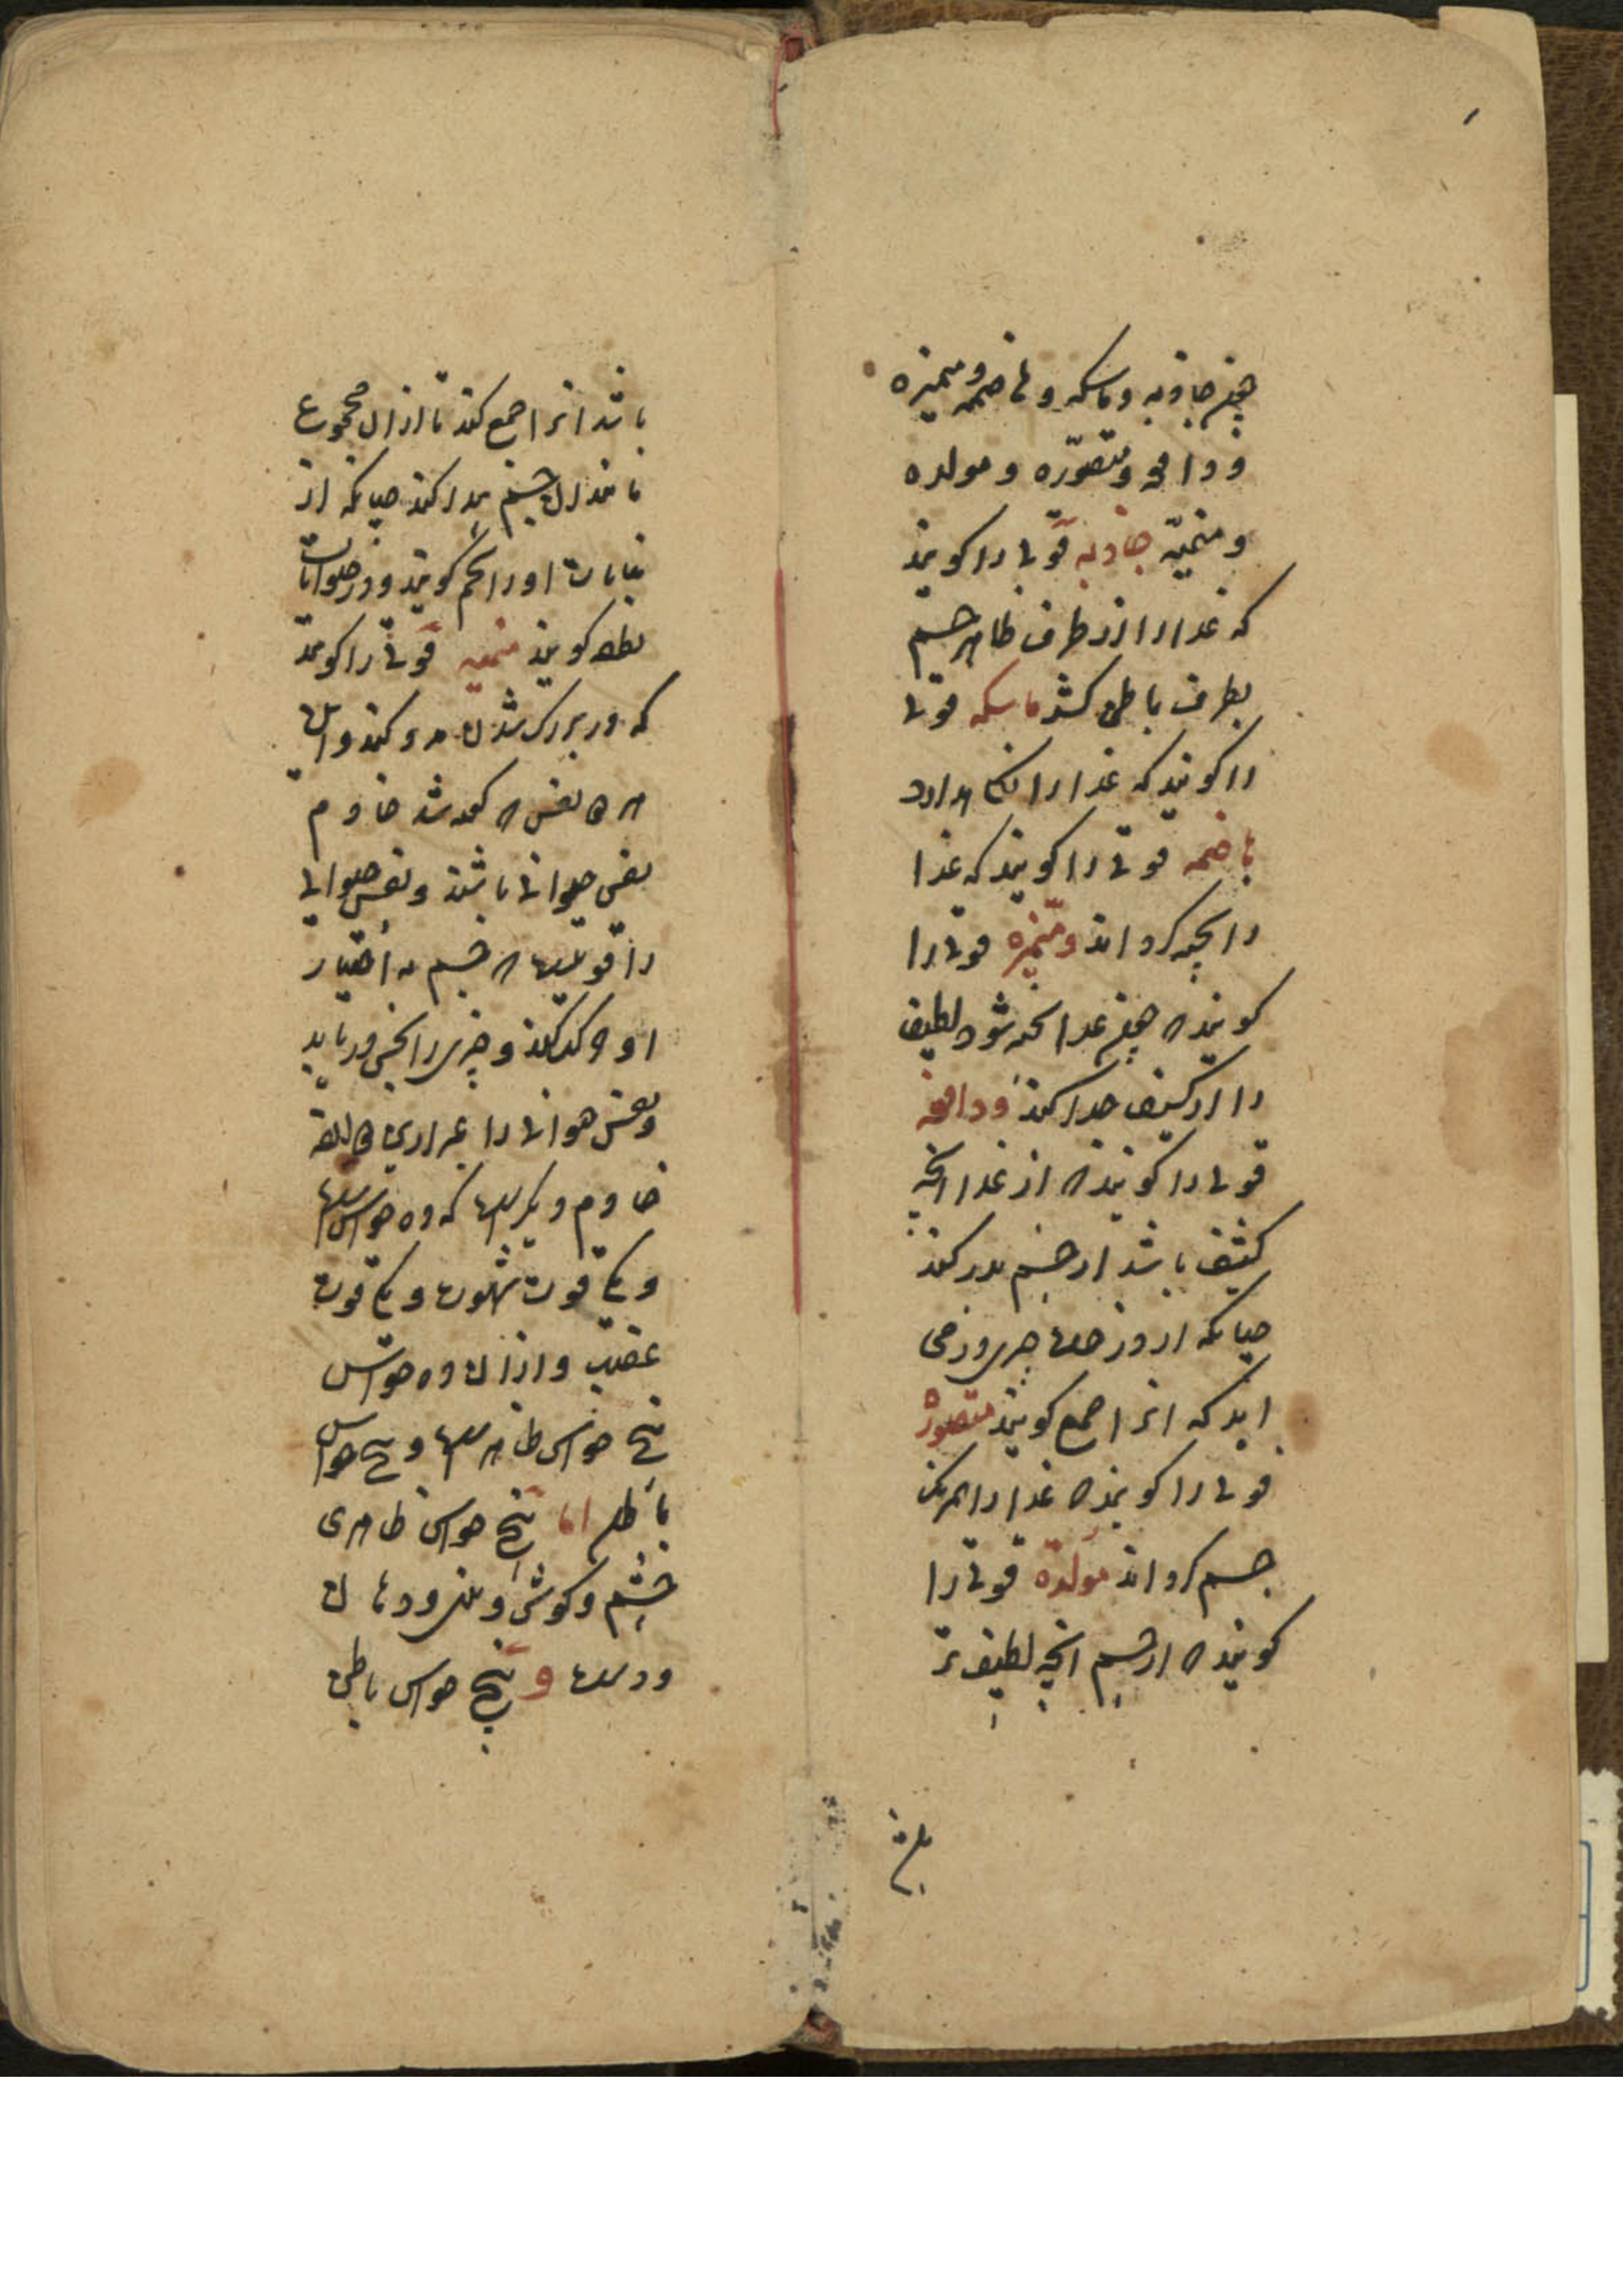 همچو جاذبه و ماسکه و هاضمه و ممیزه
و دافعه و مصوّره و مولده
و منمیّه جاذبه قوتی را کویند
که غذا را از طرف ظاهر جسم
بطرف باطن کشد ماسکه قوتی
را کویند که غذا را نکاه دارد
هاضمه قوتی را کویند که غذا
را پخته کرداند و ممیزه قوتی را
کویند که چون غذا پخته شود لطیف
را از کثیف جدا کند و دافعه
قوتی را کویند که از غذا آنچه
کثیف باشد از جسم بدر کند
چنانکه از درخت چیزی می
آید که آنرا صمغ کویند مصوره
قوتی را کویند که غذا را همرنک
جسم کرداند مولده قوتی را
کویند که از جسم آنچه لطیف تر
باشد آنرا جمع کند تا از آن مجموع
مانند آن جسم پیدا کند چنانکه از
نباتات او را تخم کویند و در حیوانات
نطفه کویند منمیه قوتی را کویند
که در بزرک شدن مدد کند و این
هر نفس که کفته شد خادم
نفس حیوانی باشند و نفس حیوانی
را قوتیست که جسم به اختیار
او حرکت کند و چیزی را بحس دریابد
و نفس حیوانی را غیر از این
خادم دیکر است که ده حواس است
و یکی قوت شهوت و یکی قوت
غضب و از آن ده حواس
پنج حواس ظاهر است و پنج حواس
باطن اما پنج حواس ظاهری
چشم و کوش و بینی و دهان
و دست و پنج حواس باطن